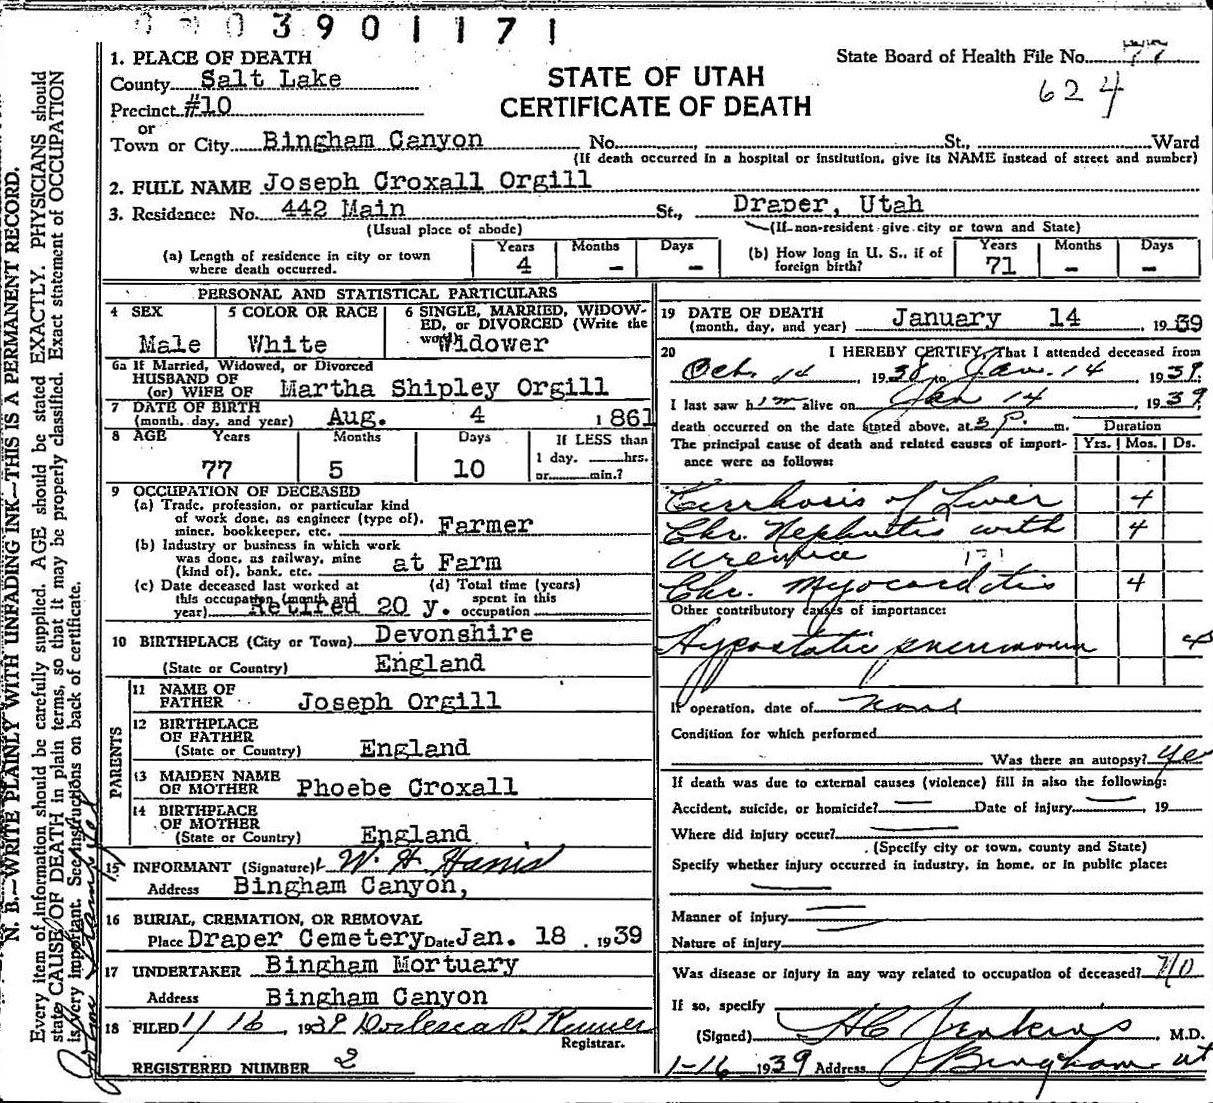 03901171
1. PLACE OF DEATH
County Salt Lake
Precinct #10
or
Town or City Bingham Canyon No. St., Ward
(If death occurred in a hospital or institution, give its NAME instead of street and number)
STATE OF UTAH
CERTIFICATE OF DEATH
State Board of Health File No. 77
624
2. FULL NAME Joseph Croxall Orgill
3. Residence: No. 442 Main St., Draper, Utah
(Usual place of abode) (If non-resident give city or town and State)
(a) Length of residence in city or town where death occurred. Years 4 Months – Days –
(b) How long in U. S., if of foreign birth? Years 71 Months – Days –
PERSONAL AND STATISTICAL PARTICULARS
4 SEX Male
5 COLOR OR RACE White
6 SINGLE, MARRIED, WIDOWED, or DIVORCED (Write the word) Widower
6a If Married, Widowed, or Divorced
HUSBAND OF
(or) WIFE OF Martha Shipley Orgill
7 DATE OF BIRTH
(month, day, and year) Aug. 4 1861
8 AGE Years Months Days If LESS than
77 5 10 1 day, hrs.
or min.?
9 OCCUPATION OF DECEASED
(a) Trade, profession, or particular kind
of work done, as engineer (type of),
miner, bookkeeper, etc. Farmer
(b) Industry or business in which work
was done, as railway, mine
(kind of), bank, etc. at Farm
(c) Date deceased last worked at
this occupation (month and
year) Retired 20 y.
(d) Total time (years)
spent in this
occupation
10 BIRTHPLACE (City or Town) Devonshire
(State or Country) England
PARENTS
11 NAME OF
FATHER Joseph Orgill
12 BIRTHPLACE
OF FATHER
(State or Country) England
13 MAIDEN NAME
OF MOTHER Phoebe Croxall
14 BIRTHPLACE
OF MOTHER
(State or Country) England
15 INFORMANT (Signature) W. H. Harris
Address Bingham Canyon,
16 BURIAL, CREMATION, OR REMOVAL
Place Draper Cemetery Date Jan. 18, 1939
17 UNDERTAKER Bingham Mortuary
Address Bingham Canyon
18 FILED 1/16 1939
Registrar.
REGISTERED NUMBER 2
19 DATE OF DEATH
(month, day, and year) January 14 1939
20 I HEREBY CERTIFY, That I attended deceased from
Oct. 14, 1938, to Jan. 14, 1939.
I last saw him alive on Jan 14, 1939
death occurred on the date stated above, at 3 P. m. Duration
The principal cause of death and related causes of import- Yrs. Mos. Ds.
ance were as follows:
Cirrhosis of Liver 4
Chr. Nephritis with 4
Uremia 131
Chr. Myocarditis 4
Other contributory causes of importance:
Hypostatic pneumonia 4
If operation, date of None
Condition for which performed
Was there an autopsy? Yes
If death was due to external causes (violence) fill in also the following:
Accident, suicide, or homicide? — Date of injury —, 19
Where did injury occur? —
(Specify city or town, county and State)
Specify whether injury occurred in industry, in home, or in public place:
—
Manner of injury —
Nature of injury —
Was disease or injury in any way related to occupation of deceased? No
If so, specify
(Signed) H C Jenkins M.D.
1-16 1939 Address Bingham Ut
N. B.—WRITE PLAINLY WITH UNFADING INK—THIS IS A PERMANENT RECORD.
Every item of information should be carefully supplied. AGE should be stated EXACTLY. PHYSICIANS should
state CAUSE OF DEATH in plain terms, so that it may be properly classified. Exact statement of OCCUPATION
is very important. See instructions on back of certificate.